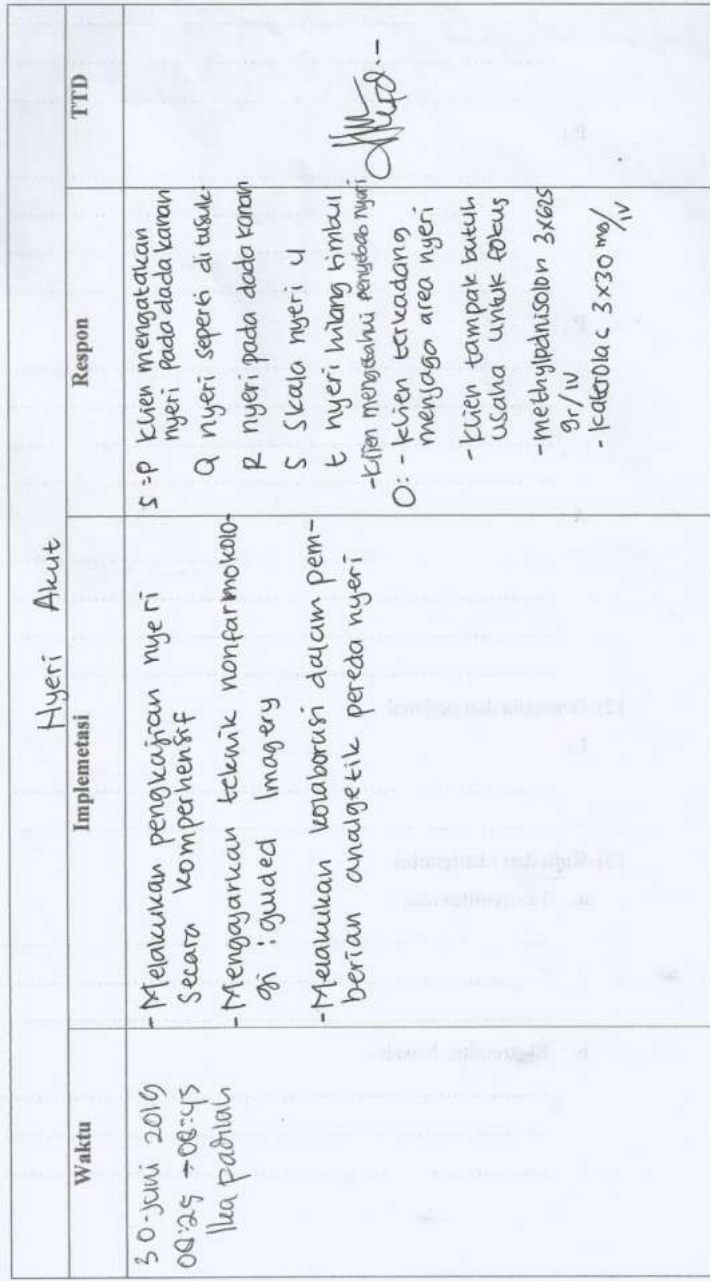 Nyeri Akut
Waktu
Implemetasi
Respon
TTD
30-juni 2019
08:25 - 08:45
Ika padilah
- Melakukan pengkajian nyeri
secara komperhensif
- Mengajarkan teknik nonfarmokolo-
gi : guided Imagery
- Melakukan kolaborasi dalam pem-
berian analgetik pereda nyeri
S : P klien mengatakan
nyeri pada dada kanan
Q nyeri seperti ditusuk-
R nyeri pada dada kanan
S skala nyeri 4
t nyeri hilang timbul
- klien mengetahui penyebab nyeri
O: - klien terkadang
menjaga area nyeri
- klien tampak butuh
usaha untuk fokus
- methylpdnisolon 3x625
gr/iv
- katerolac 3x30 mg/
iv